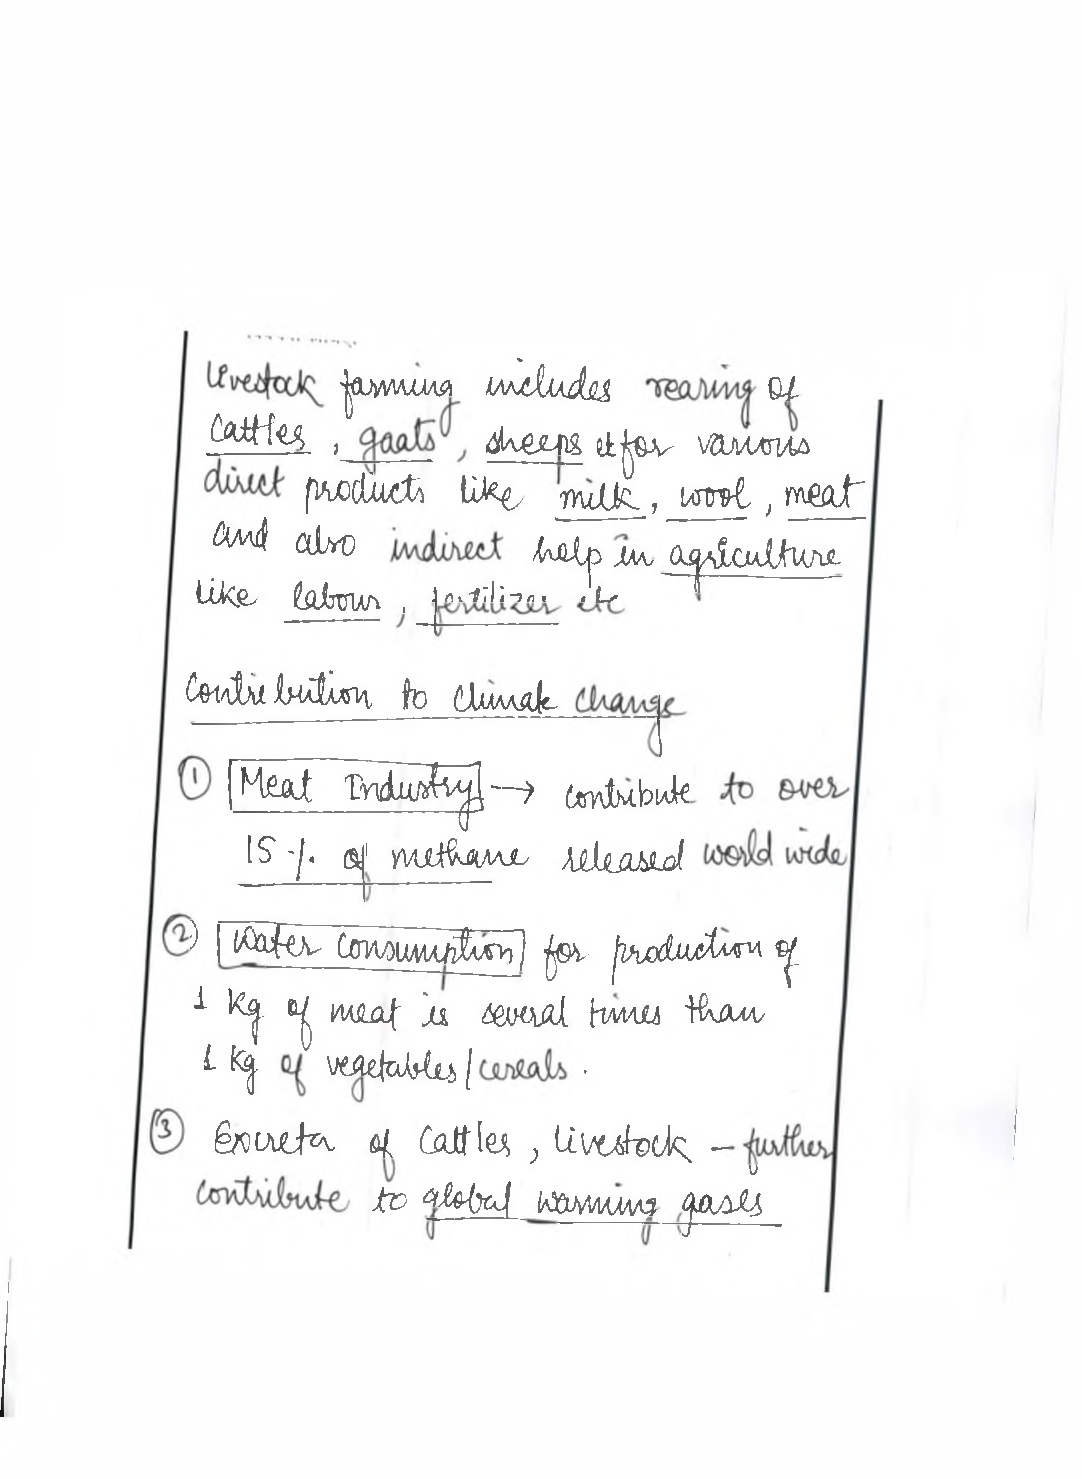 Livestock farming includes rearing of
Cattles, goats, sheeps etc for various
direct products like milk, wool, meat
and also indirect help in agriculture
like labour, fertilizer etc
Contribution to Climate Change
① Meat Industry → contribute to over
15 % of methane released world wide
② Water Consumption for production of
1 Kg of meat is several times than
1 Kg of vegetables/cereals.
③ Excreta of Cattles, livestock – further
contribute to global warming gases